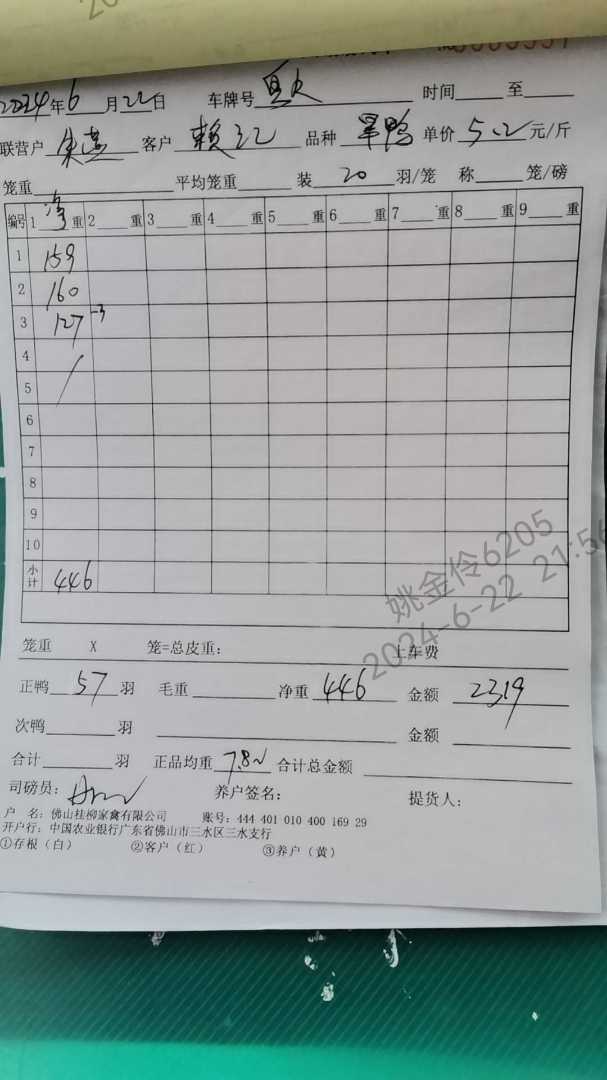 2024年6月22日 车牌号 时间 至
联营户 朱 客户 赖记 品种 旱鸭 单价 5.2 元/斤
笼重 平均笼重 装 20 羽/笼 称 笼/磅
编号 1 净 重 2 重 3 重 4 重 5 重 6 重 7 重 8 重 9 重
1 159
2 160
3 127 -3
4
5
6
7
8
9
10
小计 446
笼重 X 笼=总皮重: 上车费
正鸭 57 羽 毛重 净重 446 金额 2319
次鸭 羽 金额
合计 羽 正品均重 7.82 合计总金额
司磅员: 养户签名: 提货人:
户 名: 佛山桂柳家禽有限公司 账号: 444 401 010 400 169 29
开户行: 中国农业银行广东省佛山市三水区三水支行
①存根（白） ②客户（红） ③养户（黄）
姚金伶6205
2024-6-22 21:56